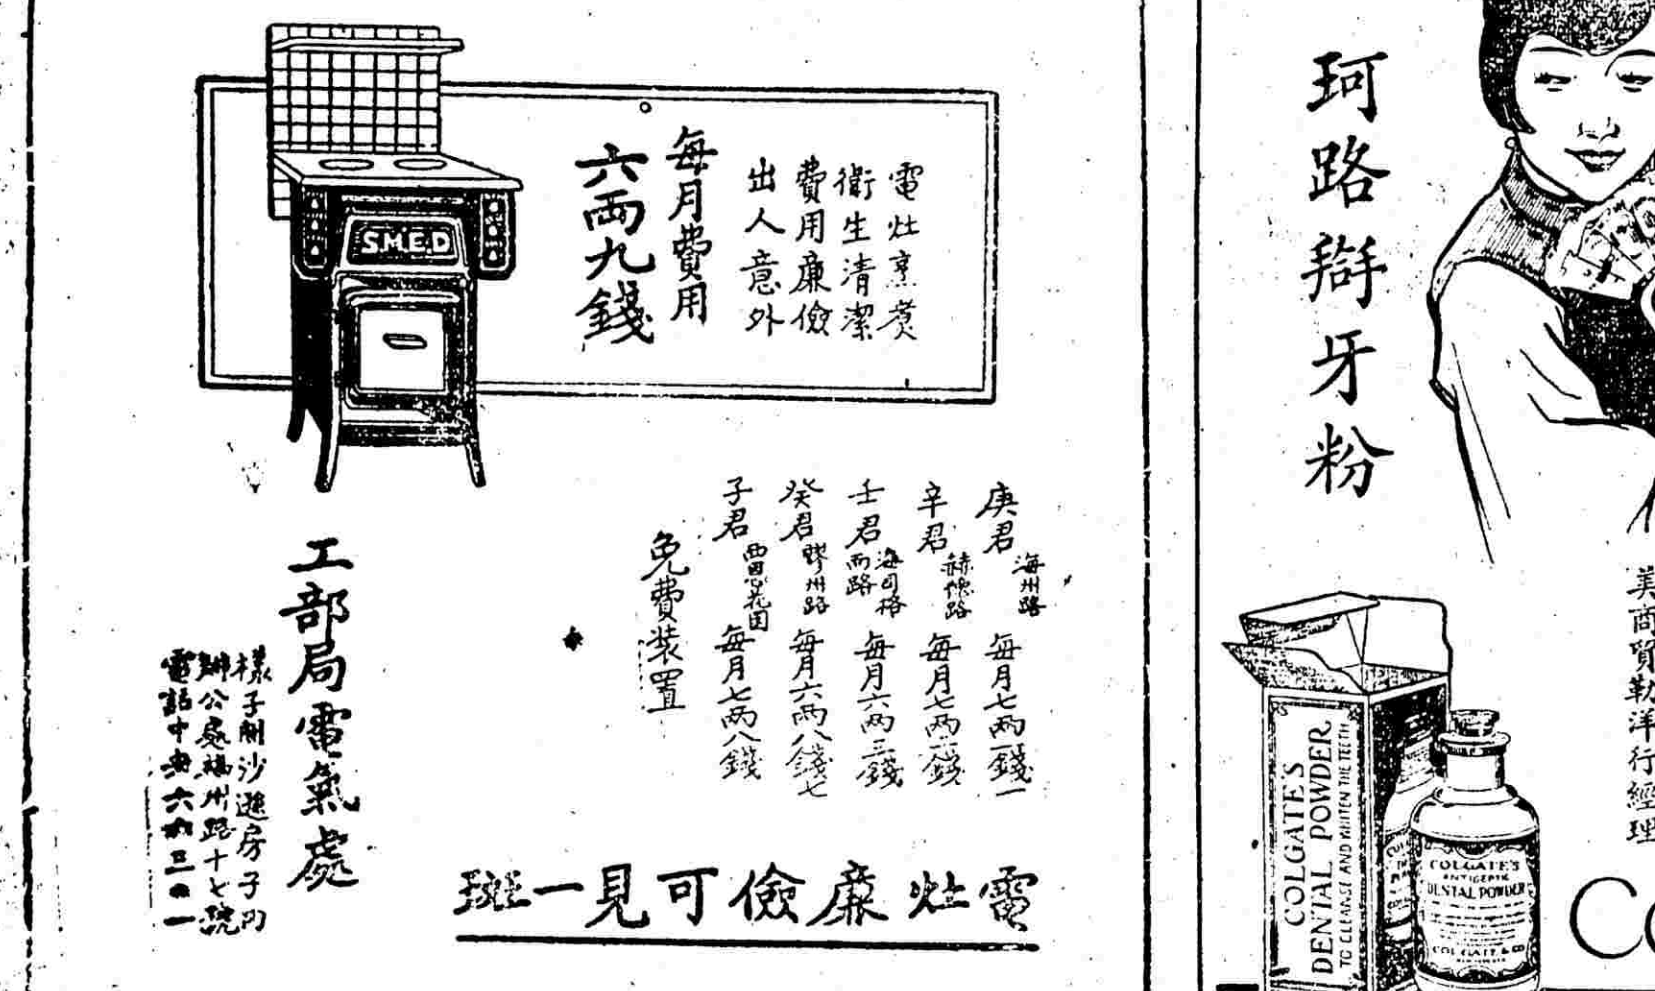 電灶烹煮
衛生清潔
費用廉儉
出人意外
每月費用
六両九錢
S.M.E.D
庚君 海州路 每月七両一錢一
辛君 赫德路 每月七両
壬君 海司格而路 每月六両三錢
癸君 膠州路 每月六両八錢七
子君 花园 每月七両八錢
免費裝置
工部局電氣處
樣子間沙遜房子內
辦公處福州路十七號
電話中央六六三〇一
電灶廉儉可見一斑
珂路搿牙粉
美商貿勒洋行經理
COLGATE'S
DENTAL POWDER
TO CLEANSE AND WHITEN THE TEETH
COLGATE'S
ANTISEPTIC
DENTAL POWDER
COLGATE & CO
Co